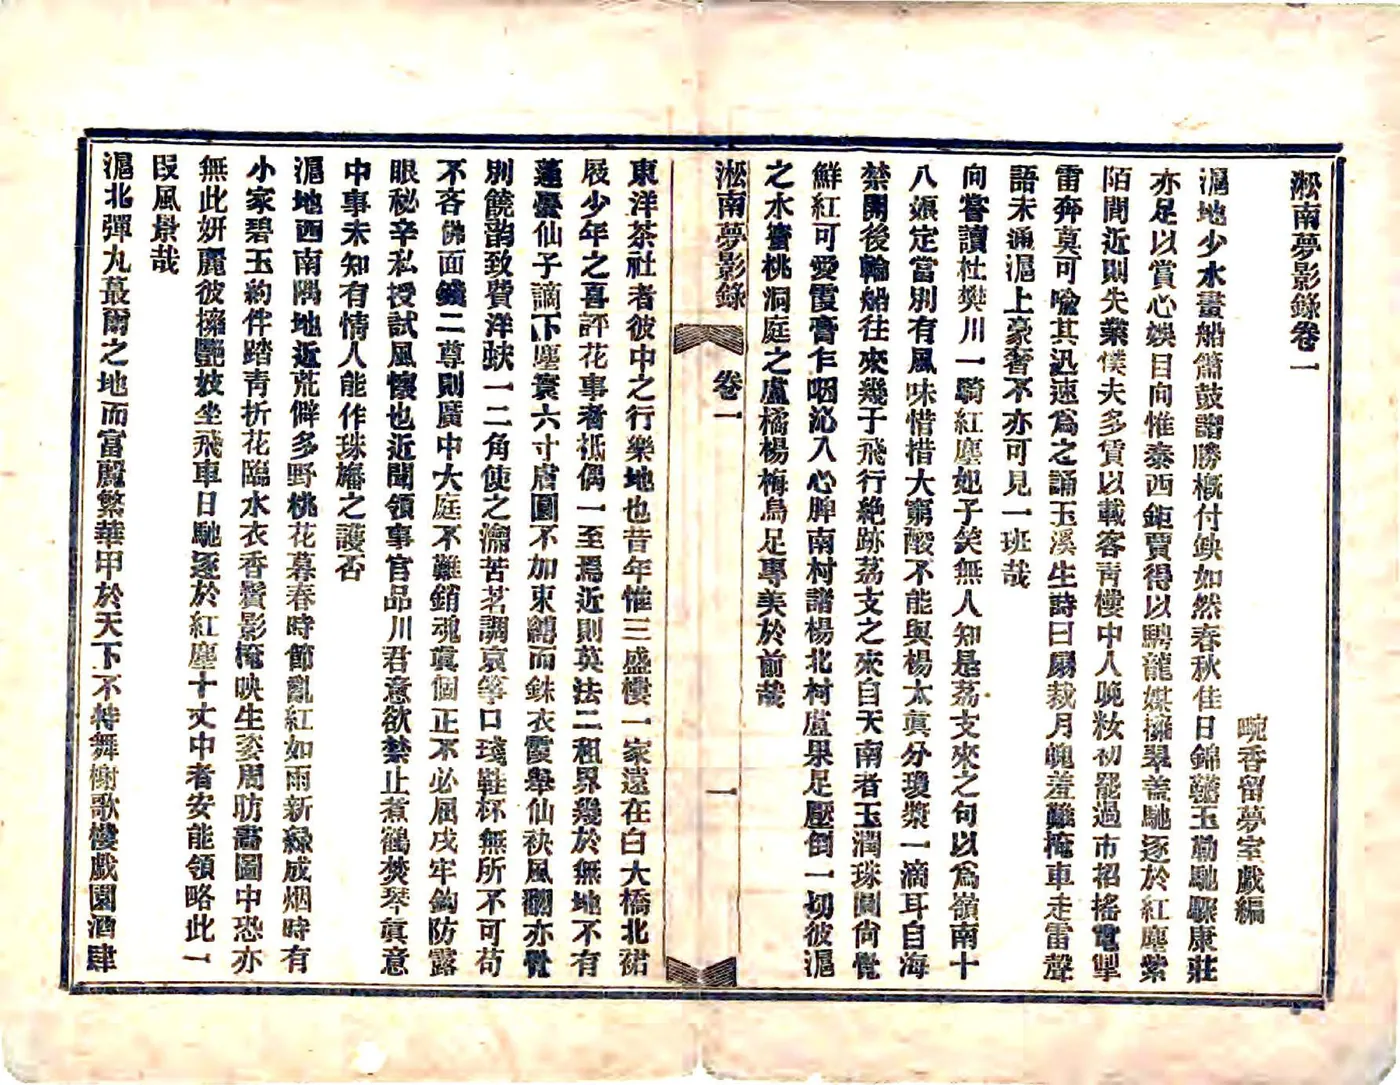 淞南夢影錄卷一
畹香留夢室戲編
滬地少水畫船簫鼓謂勝槪付鈌如然春秋佳日錦韉玉勒馳驟康莊
亦足以賞心娛目向惟泰西鉅賈得以騁龍媒擁翠蓋馳逐於紅塵紫
陌間近則失業僕夫多賃以載客靑樓中人晚粧初罷過市招搖電掣
雷奔莫可喩其迅速爲之誦玉溪生詩曰扇裁月魄羞難掩車走雷聲
語未通滬上豪奢不亦可見一班哉
向嘗讀杜樊川一騎紅塵妃子笑無人知是荔支來之句以爲嶺南十
八娘定當別有風味惜措大窮酸不能與楊太眞分瓊漿一滴耳自海
禁開後輪船往來幾于飛行絕跡荔支之來自天南者玉潤珠圓尙覺
鮮紅可愛霞膏乍咽沁入心脾南村諸楊北村盧果足壓倒一切彼滬
之水蜜桃洞庭之盧橘楊梅烏足專美於前哉
淞南夢影錄
卷一
一
東洋茶社者彼中之行樂地也昔年惟三盛樓一家遠在白大橋北裙
屐少年之喜評花事者祗偶一至焉近則英法二租界幾於無地不有
蓬臺仙子謫下塵寰六寸膚圓不加束縛而銖衣霞舉仙袂風翻亦覺
別饒韵致費洋蚨一二角使之瀹苦茗調哀箏口琖鞋杯無所不可苟
不吝佛面錢二尊則廣中大庭不難銷魂眞個正不必屈戌牢鈎防露
眼秘辛私授試風懷也近聞領事官品川君意欲禁止煮鶴焚琴眞意
中事未知有情人能作珠旛之護否
滬地西南隅地近荒僻多野桃花暮春時節亂紅如雨新綠成烟時有
小家碧玉約伴踏靑折花臨水衣香鬢影掩映生姿周昉畵圖中恐亦
無此妍麗彼擁艷妓坐飛車日馳逐於紅塵十丈中者安能領略此一
段風景哉
滬北彈丸蕞爾之地而富麗繁華甲於天下不特舞榭歌樓戲園酒肆